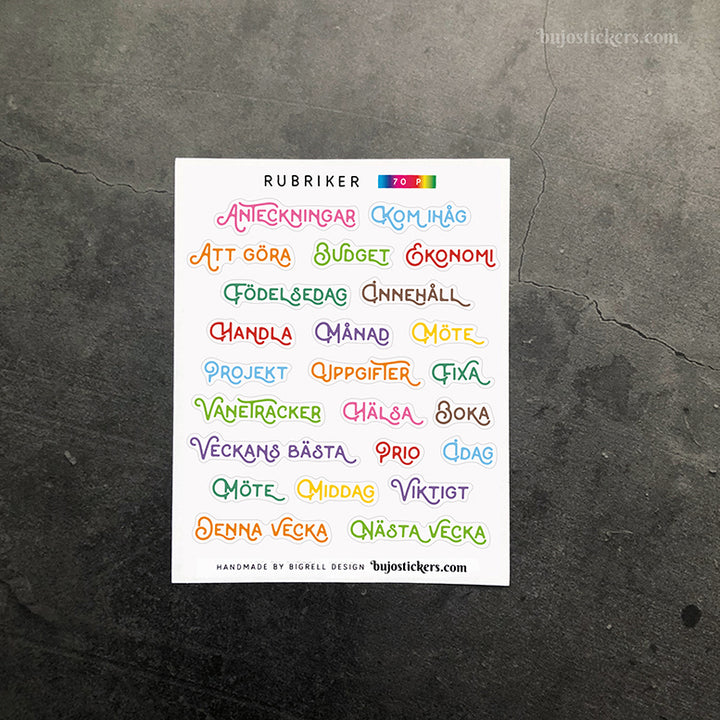 bujostickers.com
RUBRIKER 70 P
ANTECKNINGAR KOM IHÅG
ATT GÖRA BUDGET EKONOMI
FÖDELSEDAG INNEHÅLL
HANDLA MÅNAD MÖTE
PROJEKT UPPGIFTER FIXA
VANETRACKER HÄLSA BOKA
VECKANS BÄSTA PRIO IDAG
MÖTE MIDDAG VIKTIGT
DENNA VECKA NÄSTA VECKA
HANDMADE BY BIGRELL DESIGN bujostickers.com